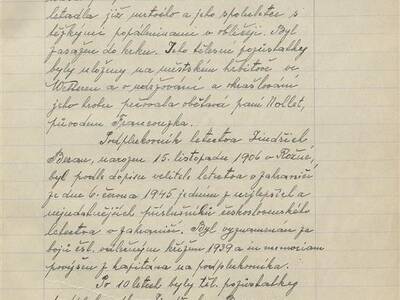 letadla již netočilo a jeho spoluletec s
těžkými popáleninami v obličeji. Byl
zasažen do krku. Jeho tělesné pozůstatky
byly uloženy na městském hřbitově ve
a o udržování a okrašlování
jeho hrobu pečovala obětavá paní Nollet,
původem Francouzka.
Podplukovník letectva Jindřich
Beran, narozen 15. listopadu 1906 v
byl podle dopisu velitele letectva v zahraničí
ze dne 6. června 1945 jedním z nejlepších a
nejudatnějších příslušníků československého
letectva v zahraničí. Byl vyznamenán ze
bojů čsl. válečným křížem 1939 a in memoriam
povýšen z kapitána na podplukovníka.
Po 10 letech byly těl. pozůstatky